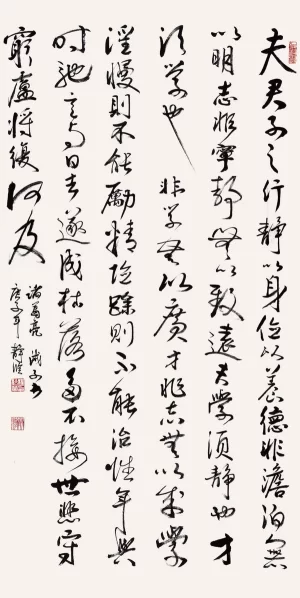 夫君子之行静以身俭以养德非澹泊无
以明志非宁静无以致远夫学须静也才
须学也非学无以广才非志无以成学
淫慢则不能励精险躁则不能治性年与
时驰意与日去遂成枯落多不接世悲守
穷庐将复何及
诸葛亮诫子书
庚子年